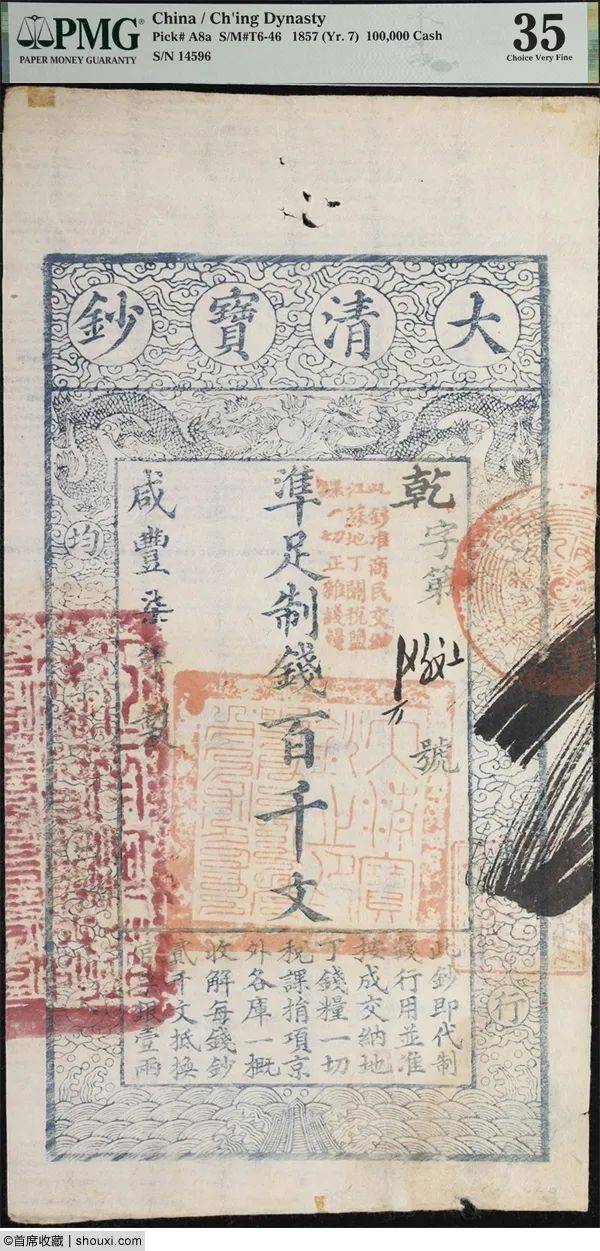 PMG
PAPER MONEY GUARANTY
China / Ch'ing Dynasty
Pick# A8a S/M#T6-46 1857 (Yr. 7) 100,000 Cash
S/N 14596
35
Choice Very Fine
大清寶鈔
乾字第
號
此鈔准商民交納
江蘇地丁關稅鹽
課一切正雜錢糧
準足制錢百千文
咸豐柒年製
均
行
此鈔即代制
錢行用並准
按成交納地
丁錢糧一切
稅課捐項京
外各庫一概
收解每錢鈔
貳千文抵換
官票銀壹兩
首席收藏 | shouxi.com